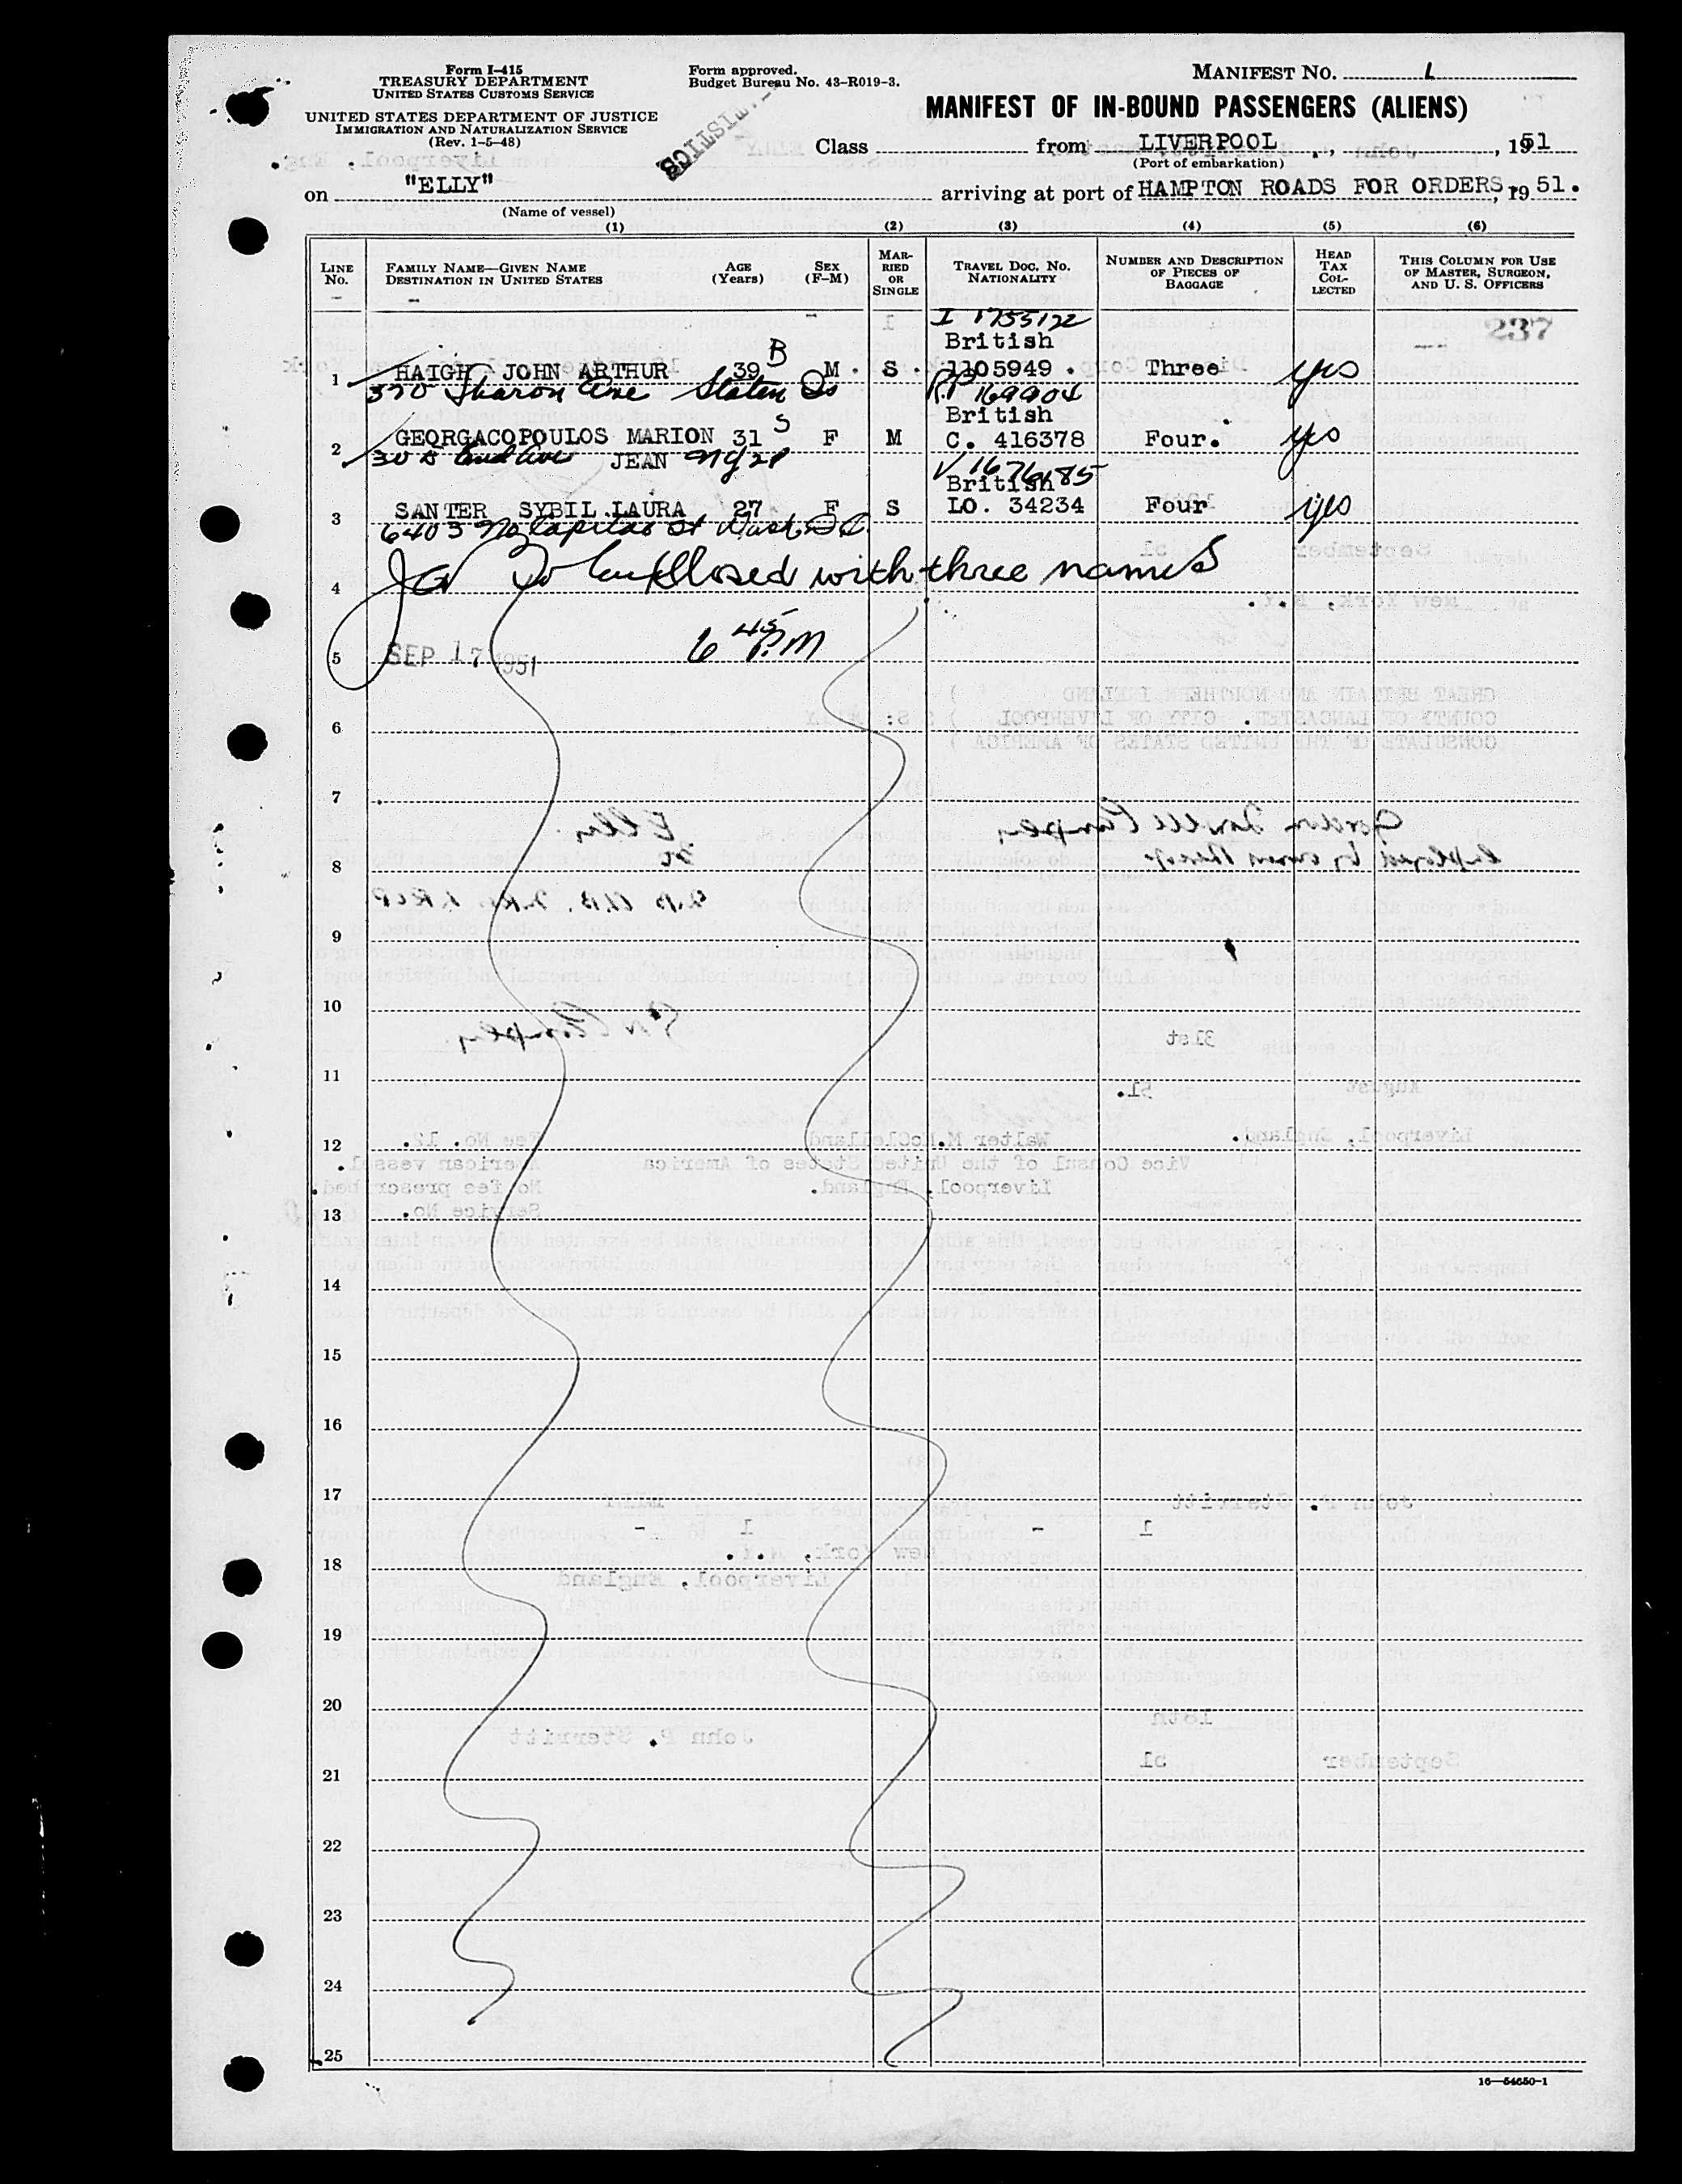 Form I-415
TREASURY DEPARTMENT
UNITED STATES CUSTOMS SERVICE
UNITED STATES DEPARTMENT OF JUSTICE
IMMIGRATION AND NATURALIZATION SERVICE
(Rev. 1-5-48)
Form approved.
Budget Bureau No. 43-R019-3.
MANIFEST NO. 1
MANIFEST OF IN-BOUND PASSENGERS (ALIENS)
STATISTICS
Class from LIVERPOOL, 1951
(Port of embarkation)
on "ELLY" arriving at port of HAMPTON ROADS FOR ORDERS, 1951.
(Name of vessel)
(1) (2) (3) (4) (5) (6)
LINE NO. FAMILY NAME—GIVEN NAME DESTINATION IN UNITED STATES AGE (YEARS) SEX (F-M) MARRIED OR SINGLE TRAVEL DOC. NO. NATIONALITY NUMBER AND DESCRIPTION OF PIECES OF BAGGAGE HEAD TAX COLLECTED THIS COLUMN FOR USE OF MASTER, SURGEON, AND U. S. OFFICERS
I 1755122 237
British
1 HAIGH JOHN ARTHUR 39 B M. S. 1105949. Three yes
370 Sharon Ave Staten Is RP 169904
British
2 GEORGACOPOULOS MARION 31 S F M C. 416378 Four. yes
JEAN NY 21 V 1676185
British
3 SANTER SYBIL LAURA 27 F S LO. 34234 Four yes
6403 No Capital St Wash. D.C.
4 closed with three names
5 SEP 17 1951 6 45 P.M
6
7
8
9
10
11
12
13
14
15
16
17
18
19
20
21
22
23
24
25
16—54650-1